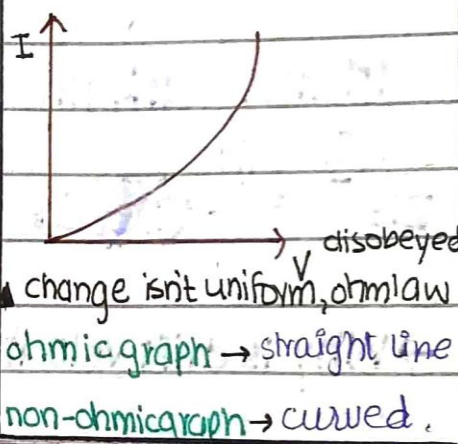 I
V
disobeyed
change isn't uniform, ohm law
ohmic graph → straight line
non-ohmic graph → curved.